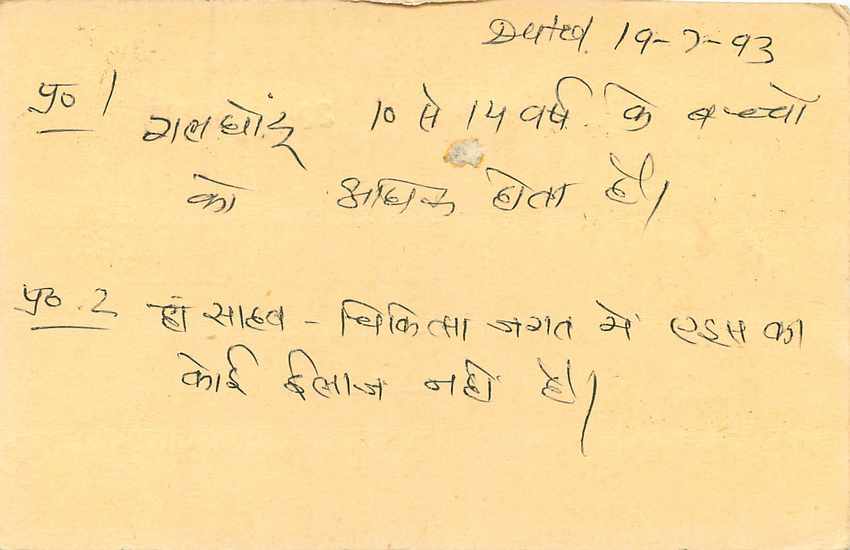 Dated 19-7-93
प्र० 1 गलघोंटू 10 से 14 वर्ष के बच्चो
को अधिक होता है।
प्र० 2 हां साहब - चिकित्सा जगत में एड्स का
कोई ईलाज नहीं है।